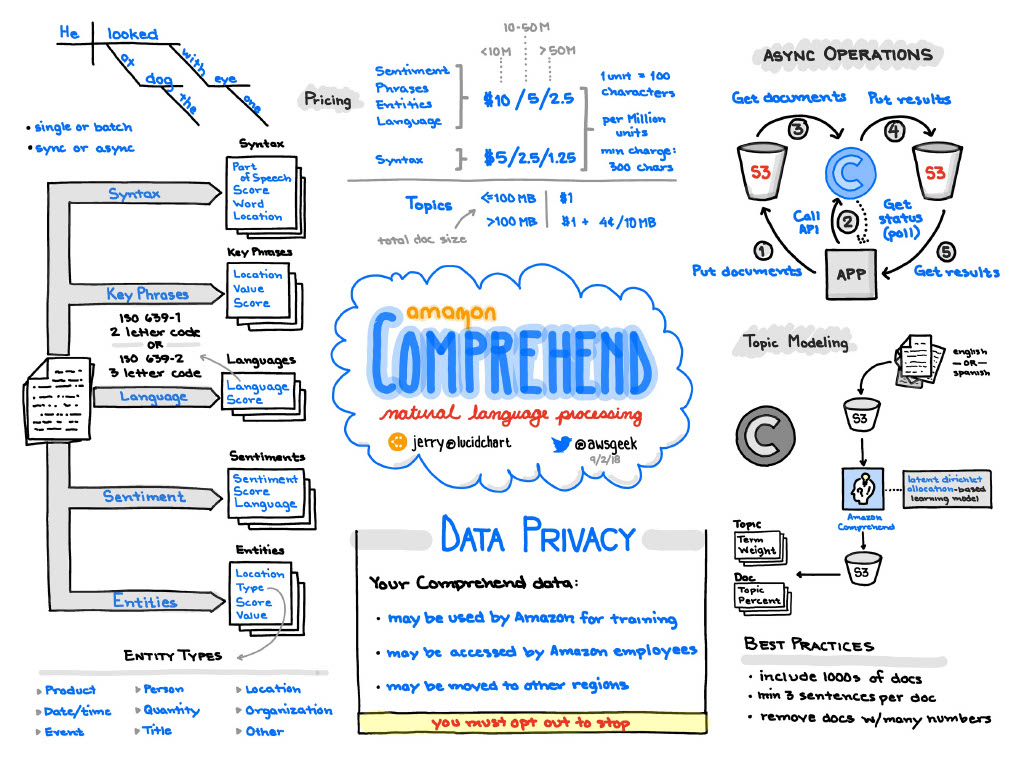 He looked
at dog the
with eye one
• single or batch
• sync or async
Syntax
Syntax
Part
of Speech
Score
Word
Location
Key Phrases
Key Phrases
Location
Value
Score
ISO 639-1
2 letter code
OR
ISO 639-2
3 letter code
Languages
Language
Language
Score
Sentiments
Sentiment
Sentiment
Score
Language
Entities
Entities
Location
Type
Score
Value
ENTITY TYPES
Product
Person
Location
Date/time
Quantity
Organization
Event
Title
Other
Pricing
10-50M
<10M
>50M
Sentiment
Phrases
Entities
Language
$10 / 5 / 2.5
Syntax
$5/2.5/1.25
1 unit = 100
characters
per Million
units
min charge:
300 chars
Topics
<=100 MB
$1
>100 MB
$1 + 4¢/10 MB
total doc size
amazon
COMPREHEND
natural language processing
jerry@lucidchart
@awsgeek
9/2/18
DATA PRIVACY
Your Comprehend data:
• may be used by Amazon for training
• may be accessed by Amazon employees
• may be moved to other regions
you must opt out to stop
ASYNC OPERATIONS
Get documents
Put results
3
4
S3
C
S3
Call
API
2
Get
status
(poll)
1
5
Put documents
APP
Get results
Topic Modeling
english
-OR-
spanish
S3
C
latent dirichlet
allocation-based
learning model
Amazon
Comprehend
Topic
Term
Weight
S3
Doc
Topic
Percent
BEST PRACTICES
• include 1000s of docs
• min 3 sentences per doc
• remove docs w/many numbers